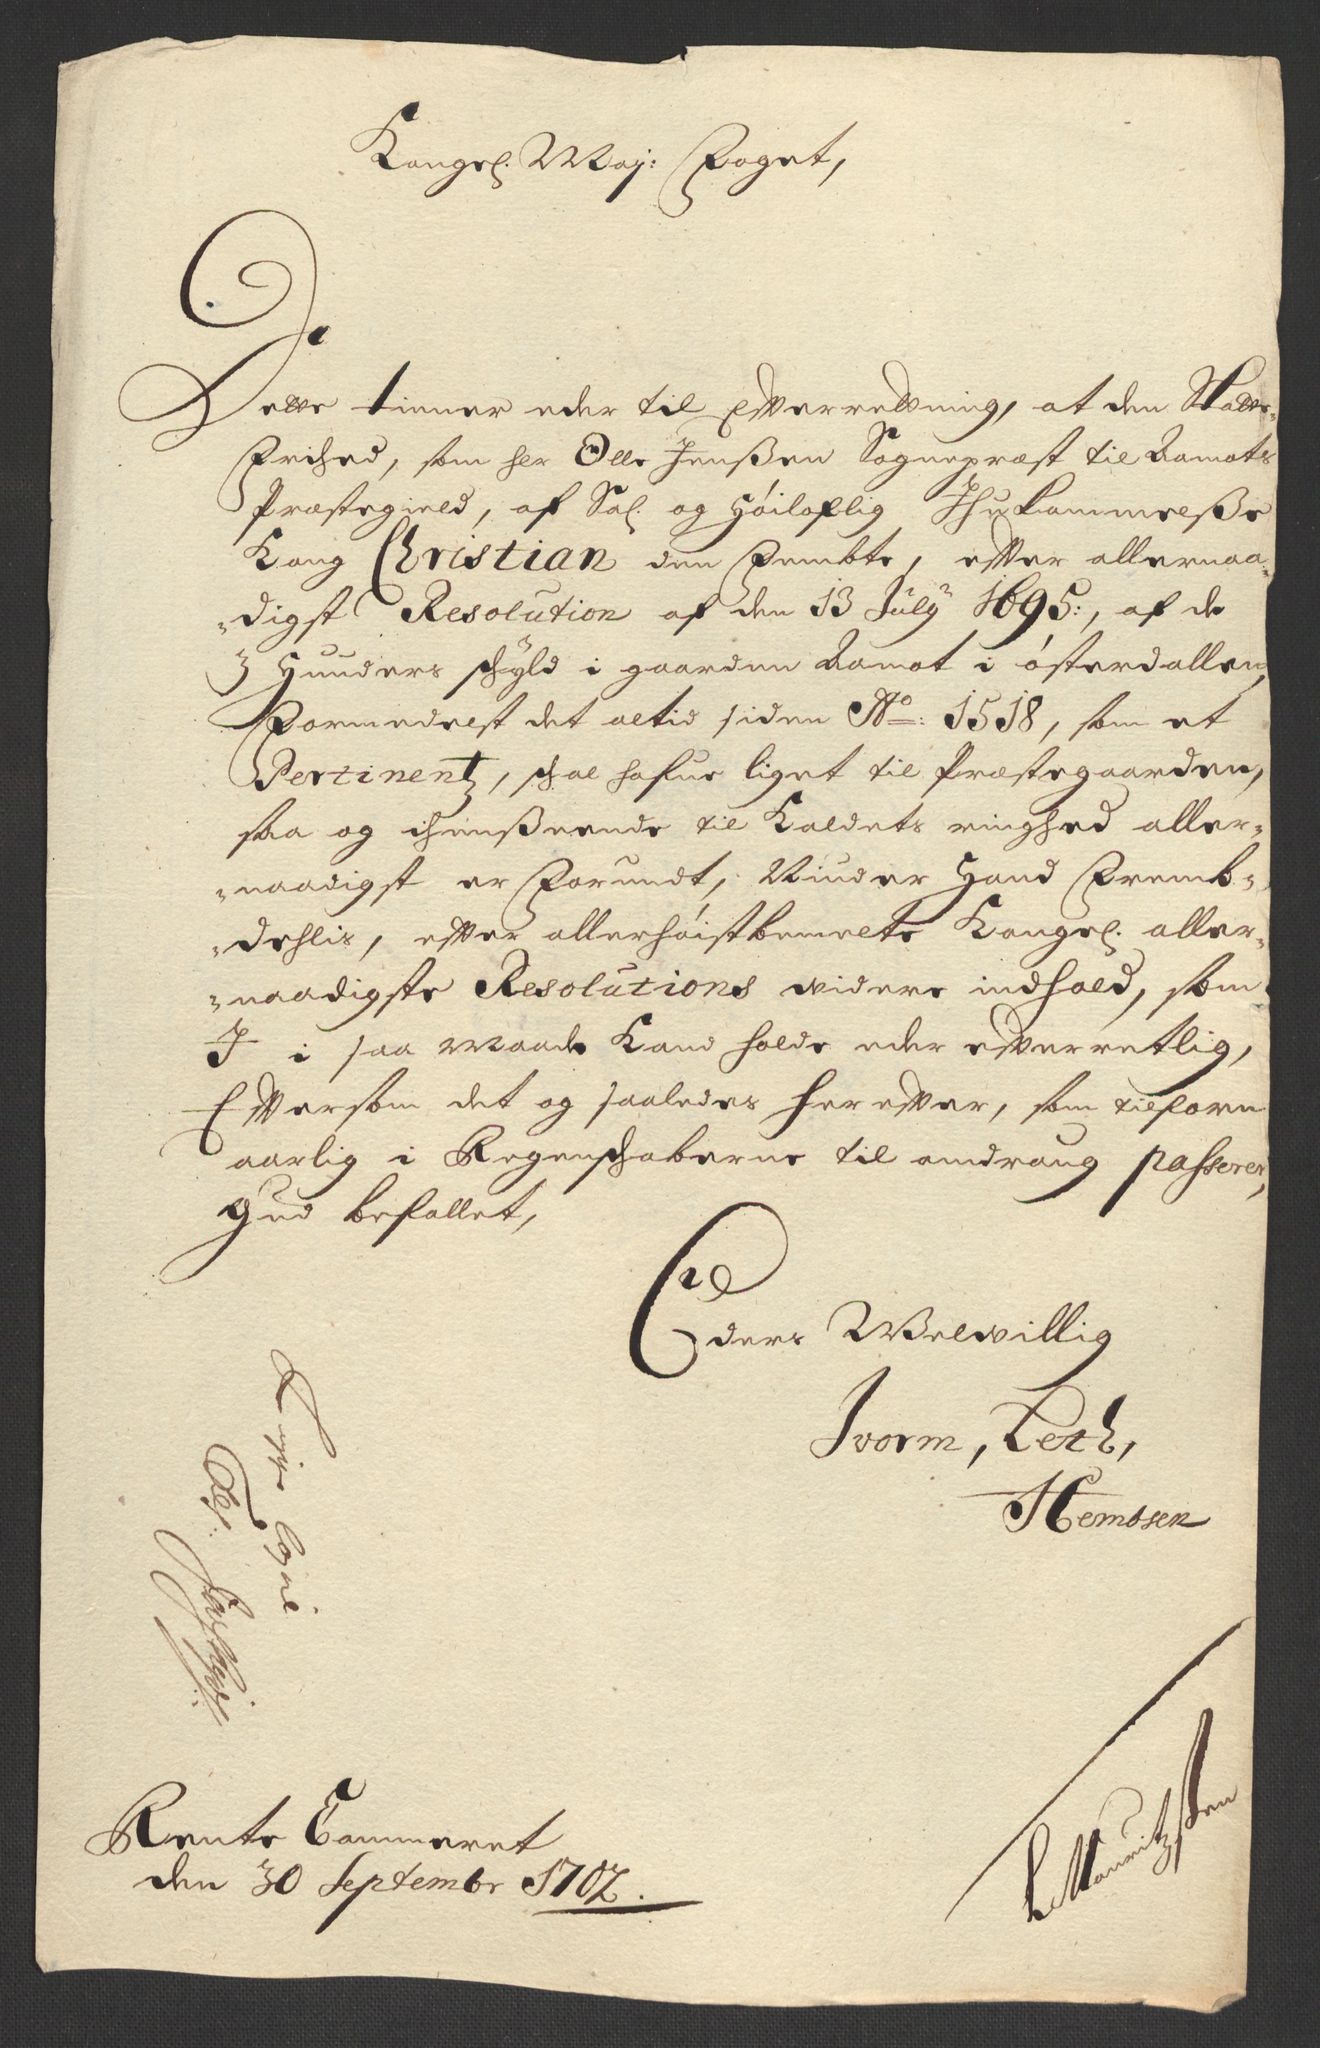 Kongel. May: Foget,
Dette tiener eder til Efterretning, at den Skatte-
Frihed, som her Olle Jenßen Sognepræst til Aamots
Præstegield, af Sal. og Höiloflig Ihukommelße
Kong Christian den Fembte, effter allernaa-
digst Resolution af den 13 July 1695:, af de
3 Hunders schyld i gaarden Aamot i österdallen,
Formedelst det altid siden Ao: 1518, som et
Pertinentz, schal hafue liget til Præstegaarden,
saa og ihenßeende til Kaldets ringhed aller-
naadigst er Forundt, Niuder Hand Fremb-
dehlis, effter allerhöistbemelte Kongel. aller-
naadigste Resolutions widere indhold, som
I i saa Maade Kand holde eder effterretlig,
Efftersom det og saaledes her effter, som tilforn
aarlig i Regenschaberne til andraug passerer,
Gud befallet,
Eders Welvillig
Iworm, Leth,
Hembsen
Rigtig Copie
Test:
Rente Cammeret
den 30 Septembr 1702.
L Mouritzßen